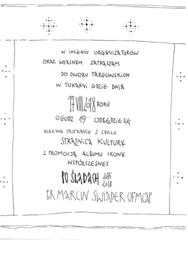 W IMIENIU ORGANIZATORÓW
ORAZ WŁASNYM ZAPRASZAM
DO DWORU TARGOWSKICH
W TOKARNI GDZIE DNIA
17 VIII 2018 ROKU
O GODZ. 19 ODBĘDZIE SIĘ
KOLEJNE SPOTKANIE Z CYKLU
STRAŻNICA KULTURY
Z PROMOCJĄ ALBUMU IKONY
WSPÓŁCZESNEJ
PO ŚLADACH
2018
BR MARCIN ŚWIĄDER OFMCAP